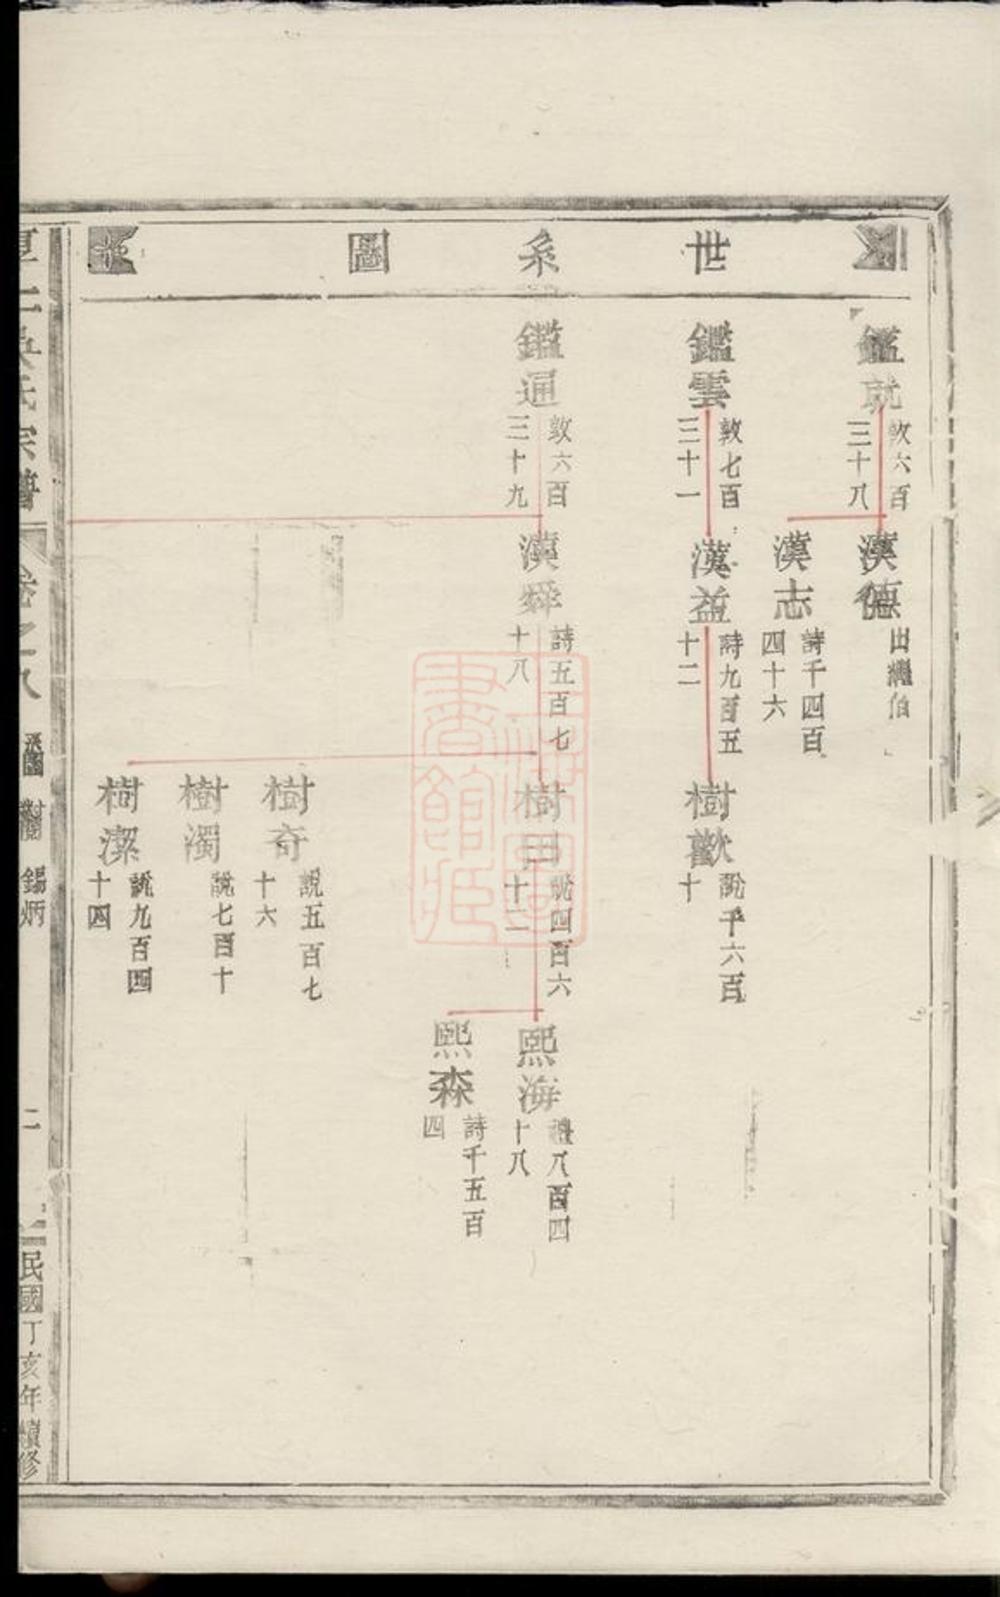 世系圖
鑑就
敦六百
三十八
漢德
出繼伯
漢志
詩千四百
四十六
鑑雲
敦七百
三十一
漢益
詩九百五
十二
樹歡
說千六百
十
鑑通
敦六百
三十九
漢舜
詩五百七
十八
樹田
說四百六
十二
熙海
禮八百四
十八
熙森
詩千五百
四
樹奇
說五百七
十六
樹濁
說七百十
樹潔
說九百四
十四
吳氏宗譜
卷之八
系圖
錫炳
二
民國丁亥年續修